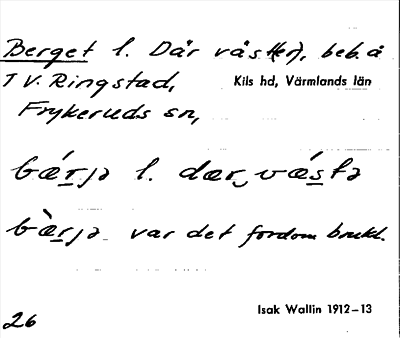 Berget l. Där väst(er), beb. å
T V. Ringstad, Kils hd, Värmlands län
Frykeruds sn,
bǽrjə l. dær‿vǽstə
bæ̀rjə var det fordom brukl.
Isak Wallin 1912–13
26